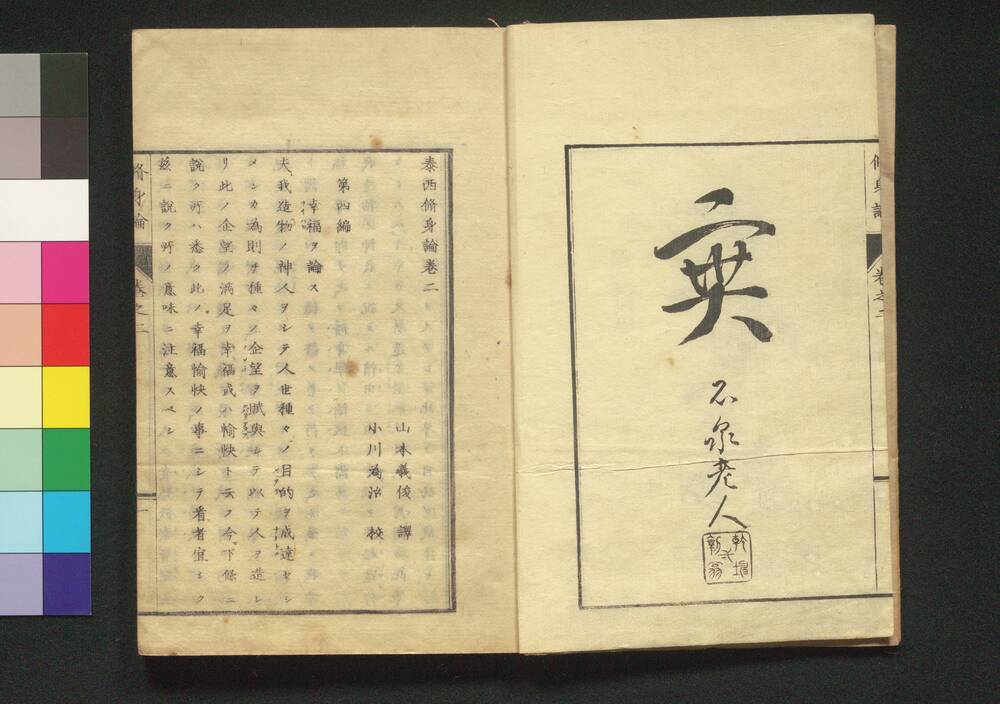 脩身論
卷之二
実
石泉老人
泰西脩身論卷二
山本義俊 譯
小川為治 校
第四編
幸福ヲ論ス
夫我造物ノ神人ヲシテ人世種々ノ目的ヲ成達セシ
メンカ為則チ種々ノ企望ヲ賦與シテ以テ人ヲ造レ
リ此ノ企望ノ滿足ヲ幸福或ハ愉快ト云フ今下條ニ
說ク所ハ悉ク此ノ幸福愉快ノ事ニシテ看者宜シク
茲ニ說ク所ノ意味ニ注意スベシ
脩身論
卷之二
一